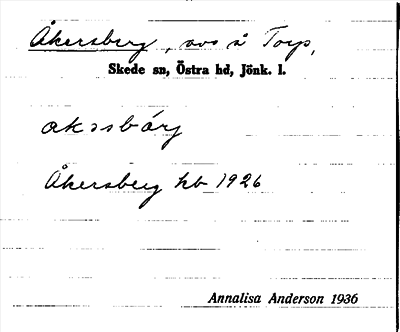 Åkersberg, avs å Torp,
Skede sn, Östra hd, Jönk. l.
åkɔsbárj
Åkersberg hb 1926
Annalisa Anderson 1936